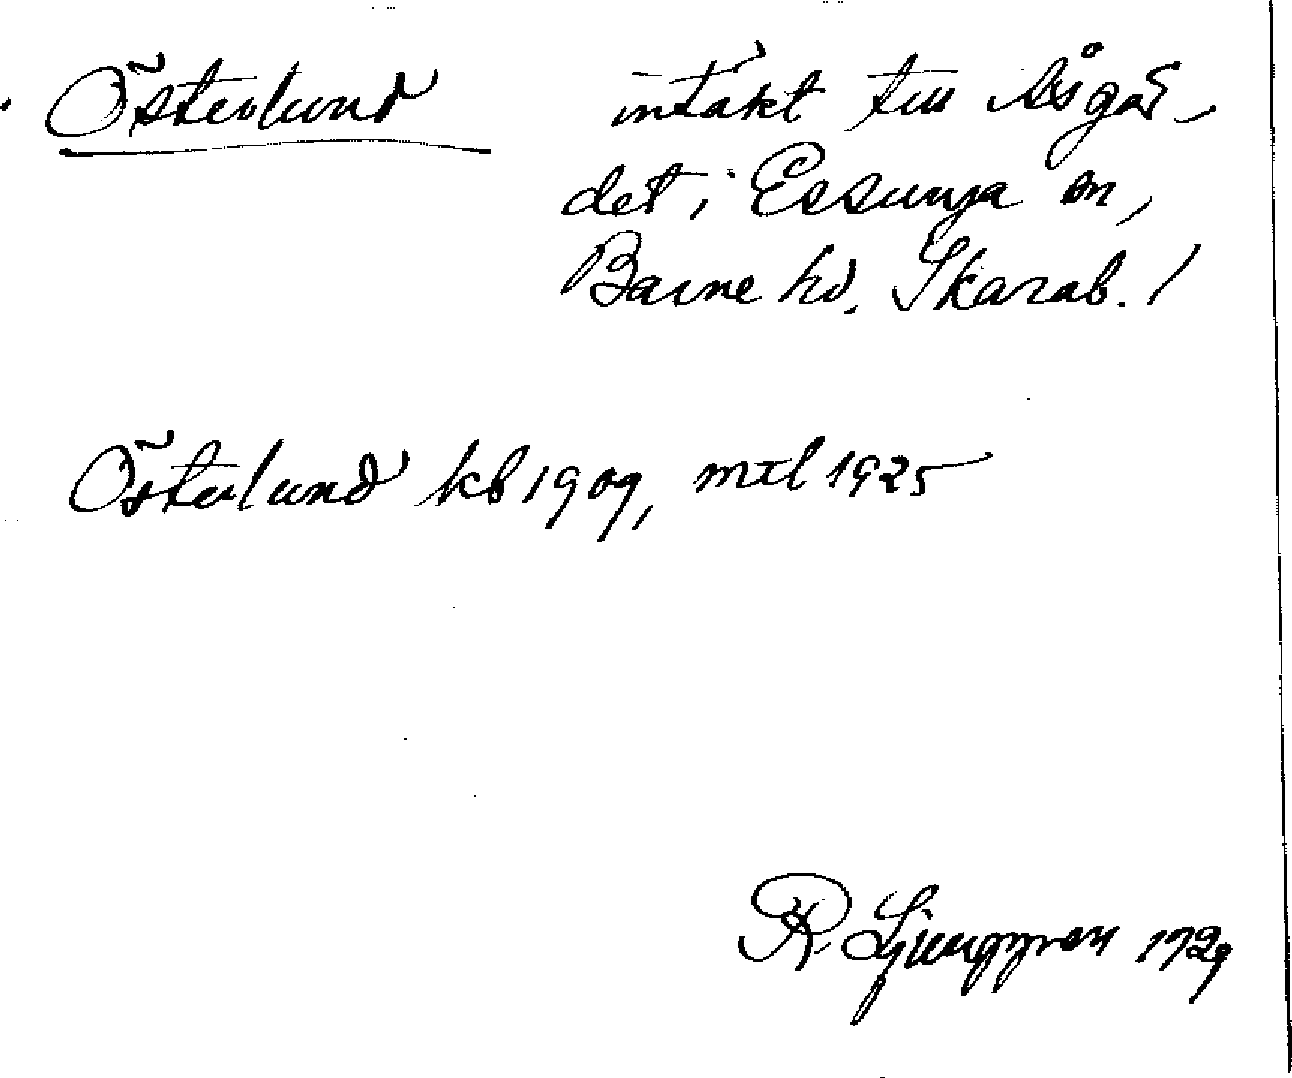 Österlund intäkt till Åsgår-
det i Essunga sn,
Barne hd. Skarab. l
Österlund kb 1909, mtl 1925
R Ljunggren 1929